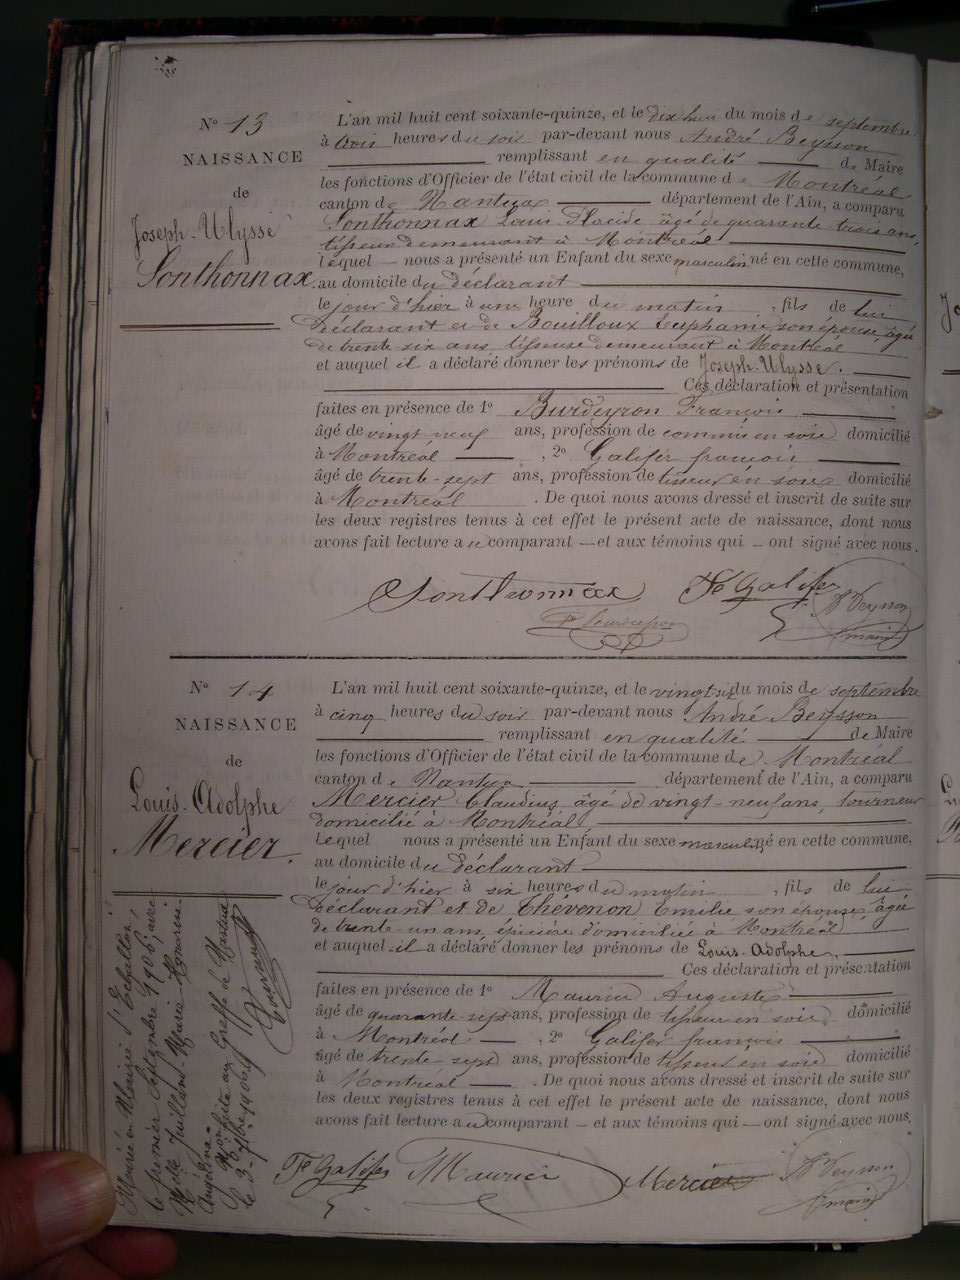 N° 13
NAISSANCE
de
Joseph-Ulysse
Sonthonnax.
L'an mil huit cent soixante-quinze, et le dix huit du mois de septembre
à trois heures du soir par-devant nous André Beysson
remplissant en qualité de Maire
les fonctions d'Officier de l'état civil de la commune de Montréal
canton de Nantua département de l'Ain, a comparu
Sonthonnax Louis Placide âgé de quarante trois ans,
tisseur demeurant à Montréal
lequel nous a présenté un Enfant du sexe masculin né en cette commune,
au domicile du déclarant
le jour d'hier à une heure du matin, fils de lui
déclarant et de Bouilloux Euphanie son épouse, âgée
de trente six ans, tisseuse demeurant à Montréal
et auquel il a déclaré donner les prénoms de Joseph-Ulysse.
Ces déclaration et présentation
faites en présence de 1° Burdeyron François
âgé de vingt neuf ans, profession de commis en soie domicilié
à Montréal, 2° Galifer françois
âgé de trente-sept ans, profession de tisseur en soie domicilié
à Montréal. De quoi nous avons dressé et inscrit de suite sur
les deux registres tenus à cet effet le présent acte de naissance, dont nous
avons fait lecture au comparant — et aux témoins qui — ont signé avec nous.
Sonthonnax F Galifer
A Beysson
maire
N° 14
NAISSANCE
de
Louis-Adolphe
Mercier.
L'an mil huit cent soixante-quinze, et le vingt six du mois de septembre
à cinq heures du soir par-devant nous André Beysson
remplissant en qualité de Maire
les fonctions d'Officier de l'état civil de la commune de Montréal
canton de Nantua département de l'Ain, a comparu
Mercier Claudius âgé de vingt-neuf ans, tourneur
domicilié à Montréal
Lequel nous a présenté un Enfant du sexe masculin né en cette commune,
au domicile du déclarant
le jour d'hier à six heures du matin, fils de lui
déclarant et de Thévenon Emilie son épouse, âgée
de trente-un ans, épicière domiciliée à Montréal
et auquel il a déclaré donner les prénoms de Louis-Adolphe.
Ces déclaration et présentation
faites en présence de 1° Maurier Auguste
âgé de quarante-sept ans, profession de tisseur en soie domicilié
à Montréal, 2° Galifer françois
âgé de trente sept ans, profession de tisseur en soie domicilié
à Montréal. De quoi nous avons dressé et inscrit de suite sur
les deux registres tenus à cet effet le présent acte de naissance, dont nous
avons fait lecture au comparant — et aux témoins qui — ont signé avec nous.
F Galifer Maurier Mercier A Beysson
maire
Marié en Mairie d'Echallon,
le premier Septembre 1906, avec
Melle Juillard Marie
Angelina.
Mention faite au Greffe de Nantua
le 3 7bre 1906.